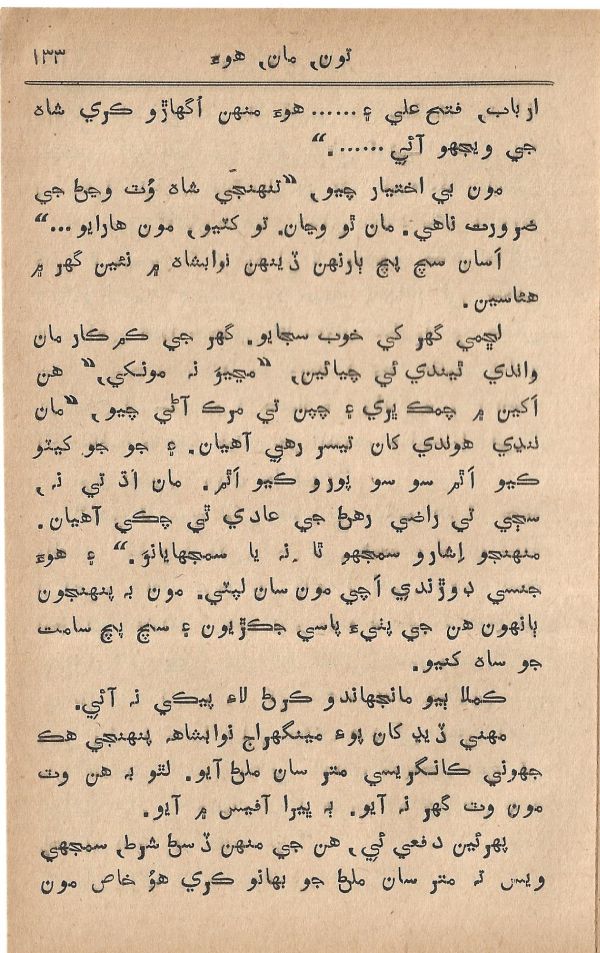 تون, مان, هوءَ ١٣٣
ارباب, فتح علي ۽ ...... هوءَ منهن اُگهاڙو ڪري شاهه
جي ويجهو آئي ......."
مون بي اختيار چيو, "تنهنجي شاهه وَٽ وڃڻ جي
ضرورت ناهي. مان ٿو وڃان. تو کٽيو, مون هارايو..."
اَسان سچ پچ ٻارنهن ڏينهن نوابشاهه ۾ نئين گهر ۾
هئاسين.
لڇمي گهر کي خوب سجايو. گهر جي ڪم ڪار مان
واندي ٿيندي ئي چيائين, "مڃيوَ نہ مونکي," هن
اَکين ۾ چمڪ ڀري ۽ چپن تي مرڪ آڻي چيو, "مان
ننڍي هوندي کان تيسر رهي آهيان. ۽ جو جو کيٽو
ڪيو اَٿم سو سو پورو ڪيو اَٿم. مان اَڌ تي نہ,
سڄي تي راضي رهڻ جي عادي ٿي چڪي آهيان.
منهنجو اِشارو سمجهو ٿا نہ يا سمجهايانوَ." ۽ هوءَ
جنسي ڊوڙندي اَچي مون سان لپٽي. مون بہ پنهنجون
ٻانهون هن جي پٺيءَ پاسي جڪڙيون ۽ سچ پچ سامت
جو ساهه کنيو.
ڪملا ٻيو مانجهاندو ڪرڻ لاءِ پيڪي نہ آئي.
مهني ڏيڍ کان پوءِ مينگهراج نوابشاهہ پنهنجي هڪ
جهوني ڪانگريسي متر سان ملڻ آيو. لٿو بہ هن وٽ
مون وٽ گهر نہ آيو. ٻہ ڀيرا آفيس ۾ آيو.
پهرئين دفعي ئي, هن جي منهن ڏسڻ شرط, سمجهي
ويس تہ متر سان ملڻ جو بهانو ڪري هوُ خاص مون